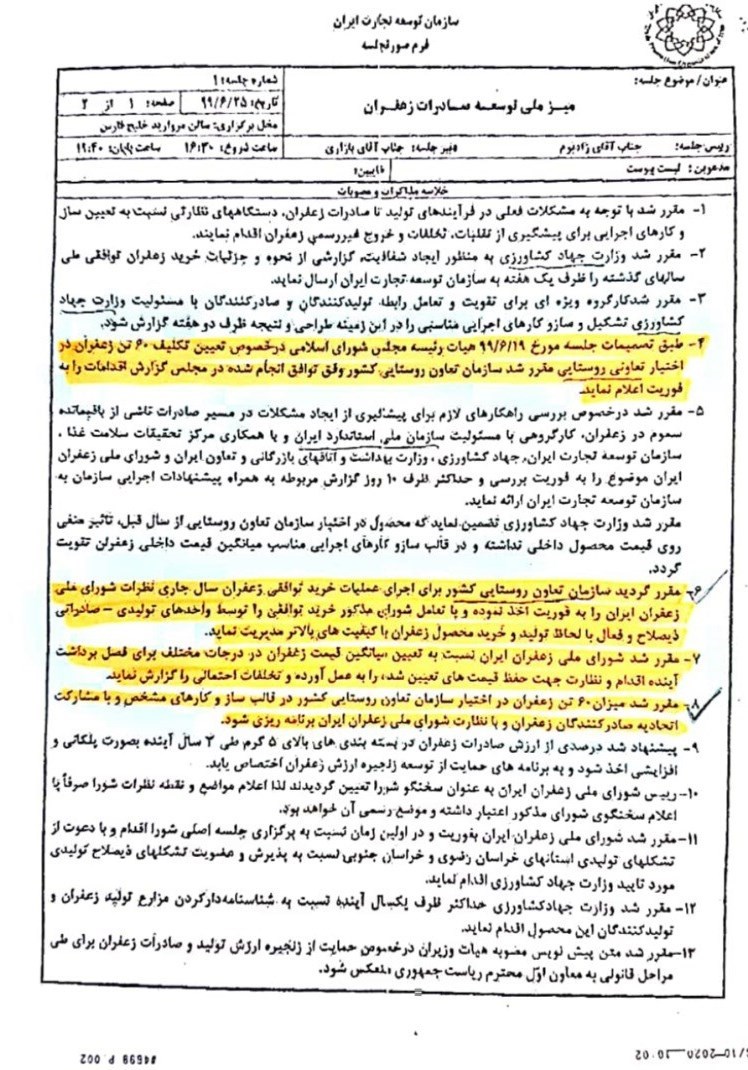 سازمان توسعه تجارت ایران
فرم صورتجلسه
عنوان/موضوع جلسه:
میز ملی توسعه صادرات زعفران
شماره جلسه: ۱
تاریخ: ۹۹/۶/۲۵ صفحه: ۱ از ۲
محل برگزاری: سالن مروارید خلیج فارس
رییس جلسه: جناب آقای زادبوم
دبیر جلسه: جناب آقای بازاری
ساعت شروع: ۱۶:۳۰ ساعت پایان: ۱۹:۴۰
مدعوین: لیست پیوست
غایبین:
خلاصه مذاکرات و مصوبات
۱- مقرر شد با توجه به مشکلات فعلی در فرآیندهای تولید تا صادرات زعفران، دستگاههای نظارتی نسبت به تعیین ساز
و کارهای اجرایی برای پیشگیری از تقلبات، تخلفات و خروج غیررسمی زعفران اقدام نمایند.
۲- مقرر شد وزارت جهاد کشاورزی به منظور ایجاد شفافیت، گزارشی از نحوه و جزئیات خرید زعفران توافقی طی
سالهای گذشته را ظرف یک هفته به سازمان توسعه تجارت ایران ارسال نماید.
۳- مقرر شدکارگروه ویژه ای برای تقویت و تعامل رابطه تولیدکنندگان و صادرکنندگان با مسئولیت وزارت جهاد
کشاورزی تشکیل و سازو کارهای اجرایی مناسبی را در این زمینه طراحی و نتیجه ظرف دو هفته گزارش شود.
۴- طبق تصمیمات جلسه مورخ ۹۹/۶/۱۹ هیات رئیسه مجلس شورای اسلامی درخصوص تعیین تکلیف ۶۰ تن زعفران در
اختیار تعاونی روستایی مقرر شد سازمان تعاون روستایی کشور وفق توافق انجام شده در مجلس گزارش اقدامات را به
فوریت اعلام نماید.
۵- مقرر شد درخصوص بررسی راهکارهای لازم برای پیشگیری از ایجاد مشکلات در مسیر صادرات ناشی از باقیمانده
سموم در زعفران، کارگروهی با مسئولیت سازمان ملی استاندارد ایران و با همکاری مرکز تحقیقات سلامت غذا ،
سازمان توسعه تجارت ایران، جهاد کشاورزی ، وزارت بهداشت و اتاقهای بازرگانی و تعاون ایران و شورای ملی زعفران
ایران موضوع را به فوریت بررسی و حداکثر ظرف ۱۰ روز گزارش مربوطه به همراه پیشنهادات اجرایی سازمان به
سازمان توسعه تجارت ایران ارائه نماید.
مقرر شد وزارت جهاد کشاورزی تضمین نماید که محصول در اختیار سازمان تعاون روستایی از سال قبل، تاثیر منفی
روی قیمت محصول داخلی نداشته و در قالب سازو کارهای اجرایی مناسب میانگین قیمت داخلی زعفران تقویت
گردد.
۶- مقرر گردید سازمان تعاون روستایی کشور برای اجرای عملیات خرید توافقی زعفران سال جاری نظرات شورای ملی
زعفران ایران را به فوریت اخذ نموده و با تعامل شورای مذکور خرید توافقی را توسط واحدهای تولیدی – صادراتی
ذیصلاح و فعال با لحاظ تولید و خرید محصول زعفران با کیفیت های بالاتر مدیریت نماید.
۷- مقرر شد شورای ملی زعفران ایران نسبت به تعیین میانگین قیمت زعفران در درجات مختلف برای فصل برداشت
آینده اقدام و نظارت جهت حفظ قیمت های تعیین شده، را به عمل آورده و تخلفات احتمالی را گزارش نماید.
۸- مقرر شد میزان ۶۰ تن زعفران در اختیار سازمان تعاون روستایی کشور در قالب ساز و کارهای مشخص و با مشارکت
اتحادیه صادرکنندگان زعفران و با نظارت شورای ملی زعفران ایران برنامه ریزی شود.
۹- پیشنهاد شد درصدی از ارزش صادرات زعفران در بسته بندی های بالای ۵ گرم طی ۳ سال آینده بصورت پلکانی و
افزایشی اخذ شود و به برنامه های حمایت از توسعه زنجیره ارزش زعفران اختصاص یابد.
۱۰- رییس شورای ملی زعفران ایران به عنوان سخنگو شورا تعیین گردیدند لذا اعلام مواضع و نقطه نظرات شورا صرفاً با
اعلام سخنگوی شورای مذکور اعتبار داشته و موضع رسمی آن خواهد بود.
۱۱- مقرر شد شورای ملی زعفران ایران بفوریت و در اولین زمان نسبت به برگزاری جلسه اصلی شورا اقدام و با دعوت از
تشکلهای تولیدی استانهای خراسان رضوی و خراسان جنوبی نسبت به پذیرش و عضویت تشکلهای ذیصلاح تولیدی
مورد تایید وزارت جهاد کشاورزی اقدام نماید.
۱۲- مقرر شد وزارت جهادکشاورزی حداکثر ظرف یکسال آینده نسبت به شناسنامه‌دارکردن مزارع تولید زعفران و
تولیدکنندگان این محصول اقدام نماید.
۱۳- مقرر شد متن پیش نویس مصوبه هیات وزیران درخصوص حمایت از زنجیره ارزش تولید و صادرات زعفران برای طی
مراحل قانونی به معاون اول محترم ریاست جمهوری منعکس شود.
#4698 P.002
10-2020 10:02